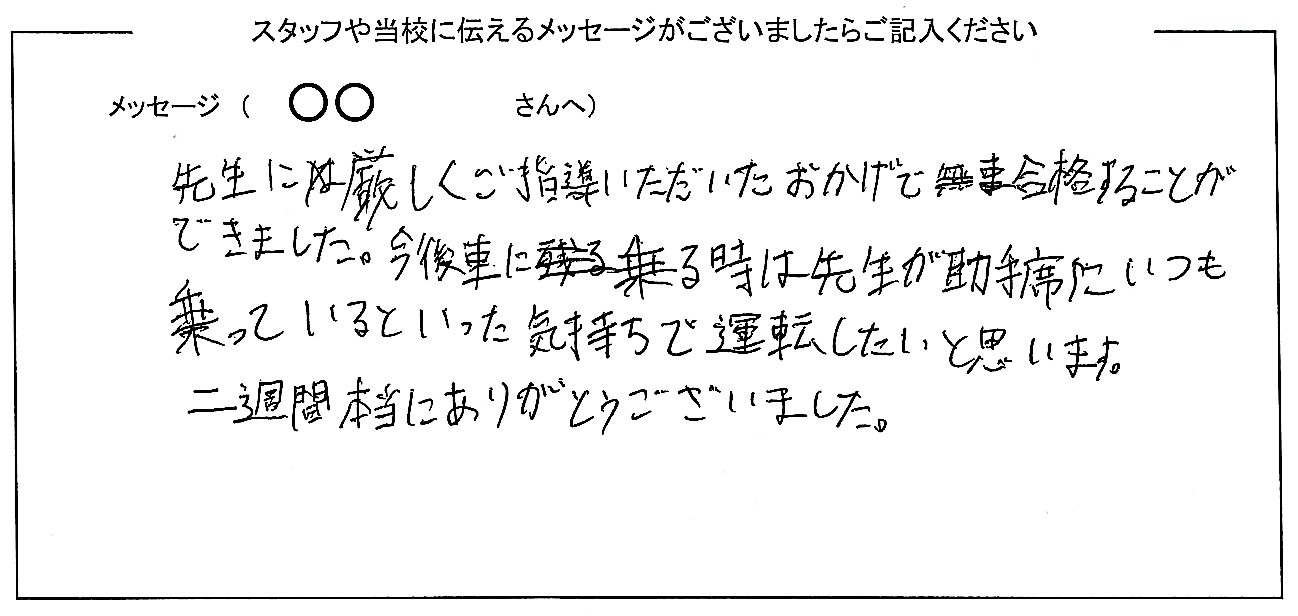 スタッフや当校に伝えるメッセージがございましたらご記入ください
メッセージ ( 〇〇 さんへ)
先生には厳しくご指導いただいたおかげで無事合格することが
できました。今後車に乗る時は先生が助手席にいつも
乗っているといった気持ちで運転したいと思います。
二週間本当にありがとうございました。